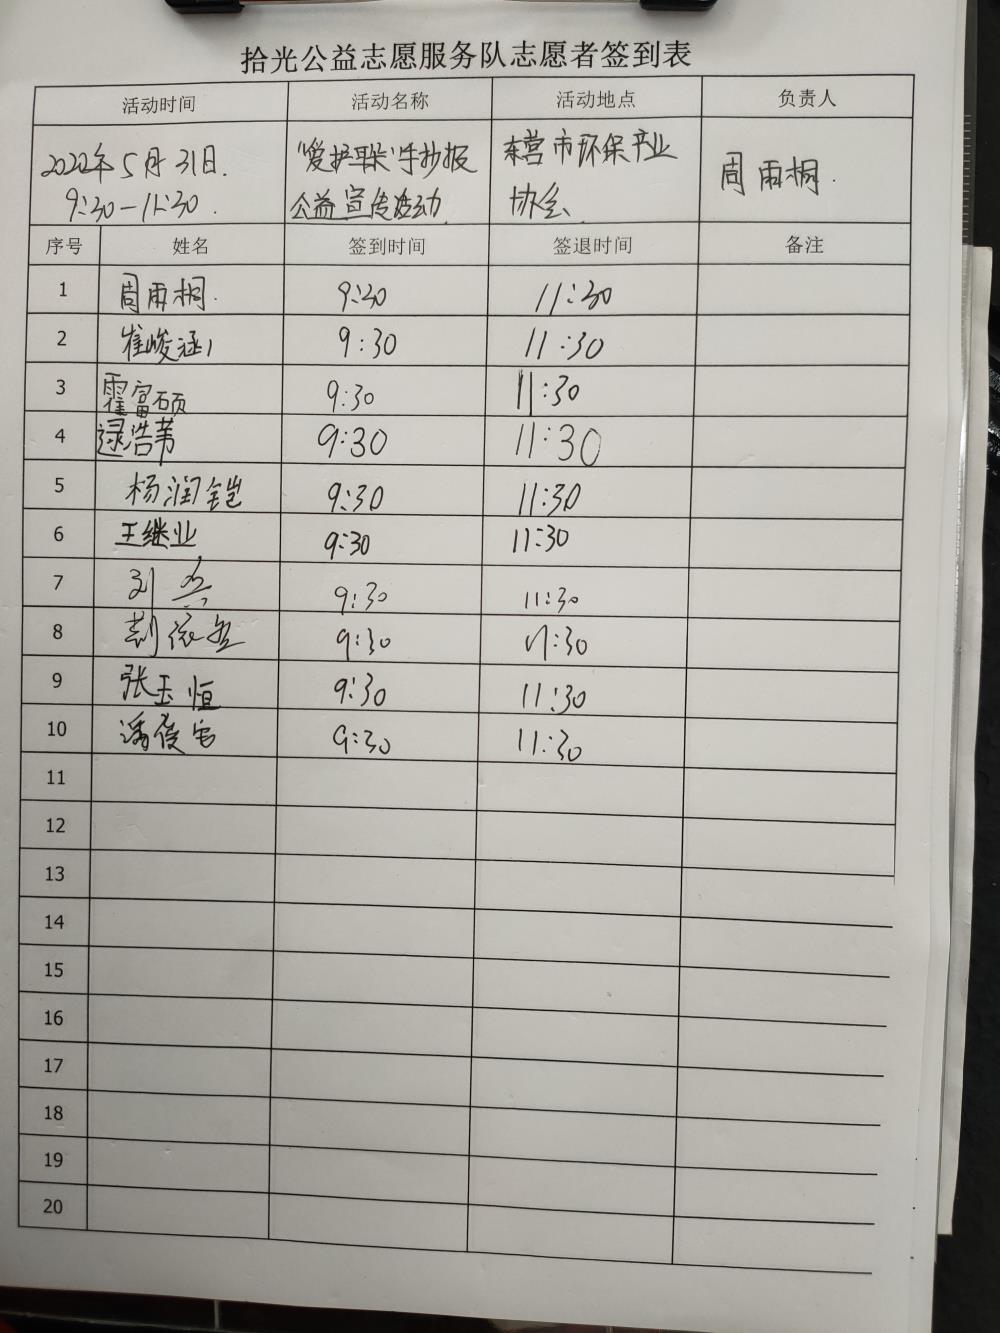 拾光公益志愿服务队志愿者签到表
活动时间 活动名称 活动地点 负责人
2022年5月31日. "爱护耳朵"手抄报 东营市环保产业 周雨桐.
9:30—11:30. 公益宣传活动 协会
序号 姓名 签到时间 签退时间 备注
1 周雨桐. 9:30 11:30
2 崔峻涵 9:30 11:30
3 霍富硕 9:30 11:30
4 逯浩苇 9:30 11:30
5 杨润铠 9:30 11:30
6 王继业 9:30 11:30
7 刘 9:30 11:30
8 9:30 11:30
9 张玉恒 9:30 11:30
10 潘俊宏 9:30 11:30
11
12
13
14
15
16
17
18
19
20